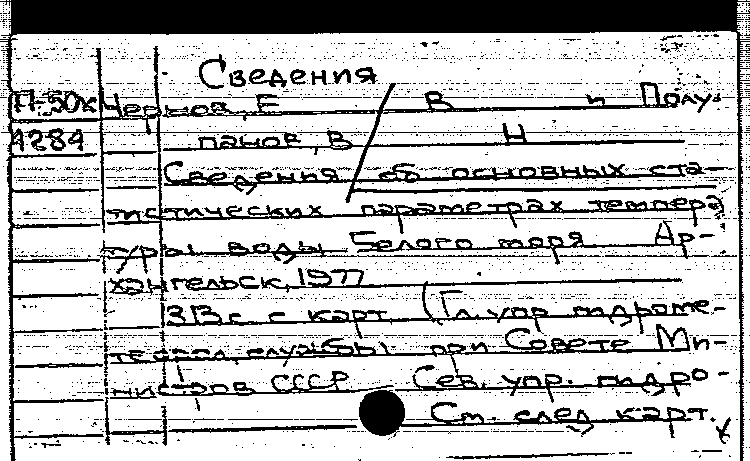 Сведения
П-50к Чернов, Е В и Полу-
1284 панов, В Н
Сведения об основных ста-
тистических параметрах темпера
туры воды Белого моря Ар-
хангельск, 1977
313с с карт (Гл. упр гидроме-
теорол. службы при Совете Ми-
нистров СССР Сев. упр. гидро-
См. след карт.